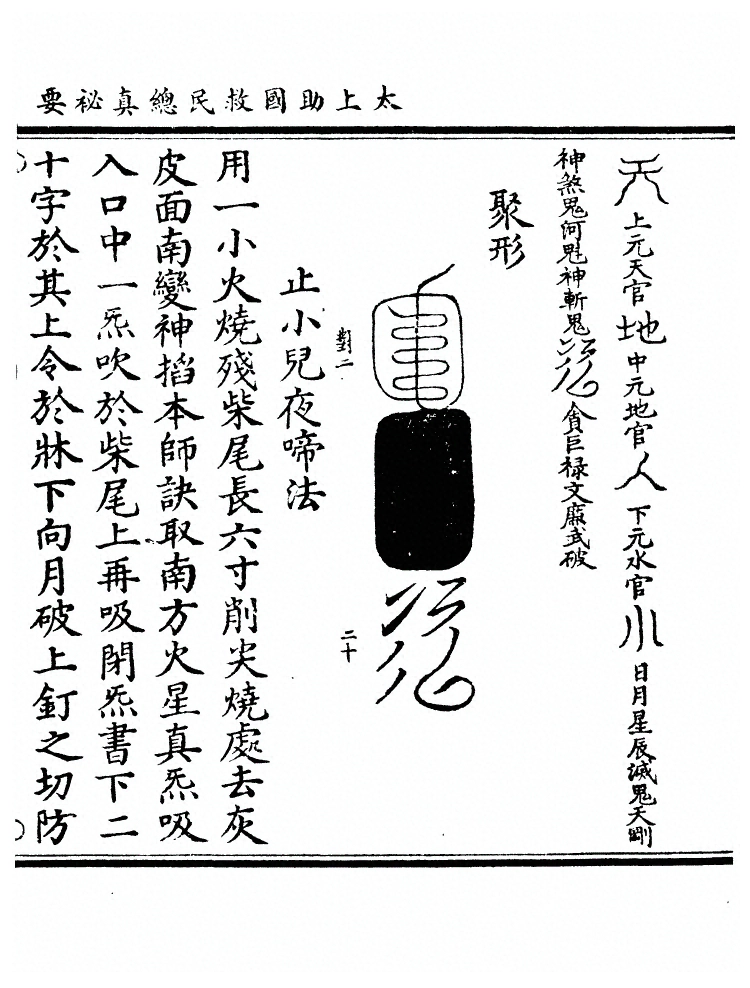 太上助國救民總真祕要
天上元天官地中元地官人下元水官小日月星辰滅鬼天剛
神煞鬼河魁神斬鬼 貪巨祿文廉武破
聚形
對二 二十
止小兒夜啼法
用一小火燒殘柴尾長六寸削尖燒處去灰
皮面南變神掐本師訣取南方火星真炁吸
入口中一炁吹於柴尾上再吸閉炁書下二
十字於其上令於牀下向月破上釘之切防